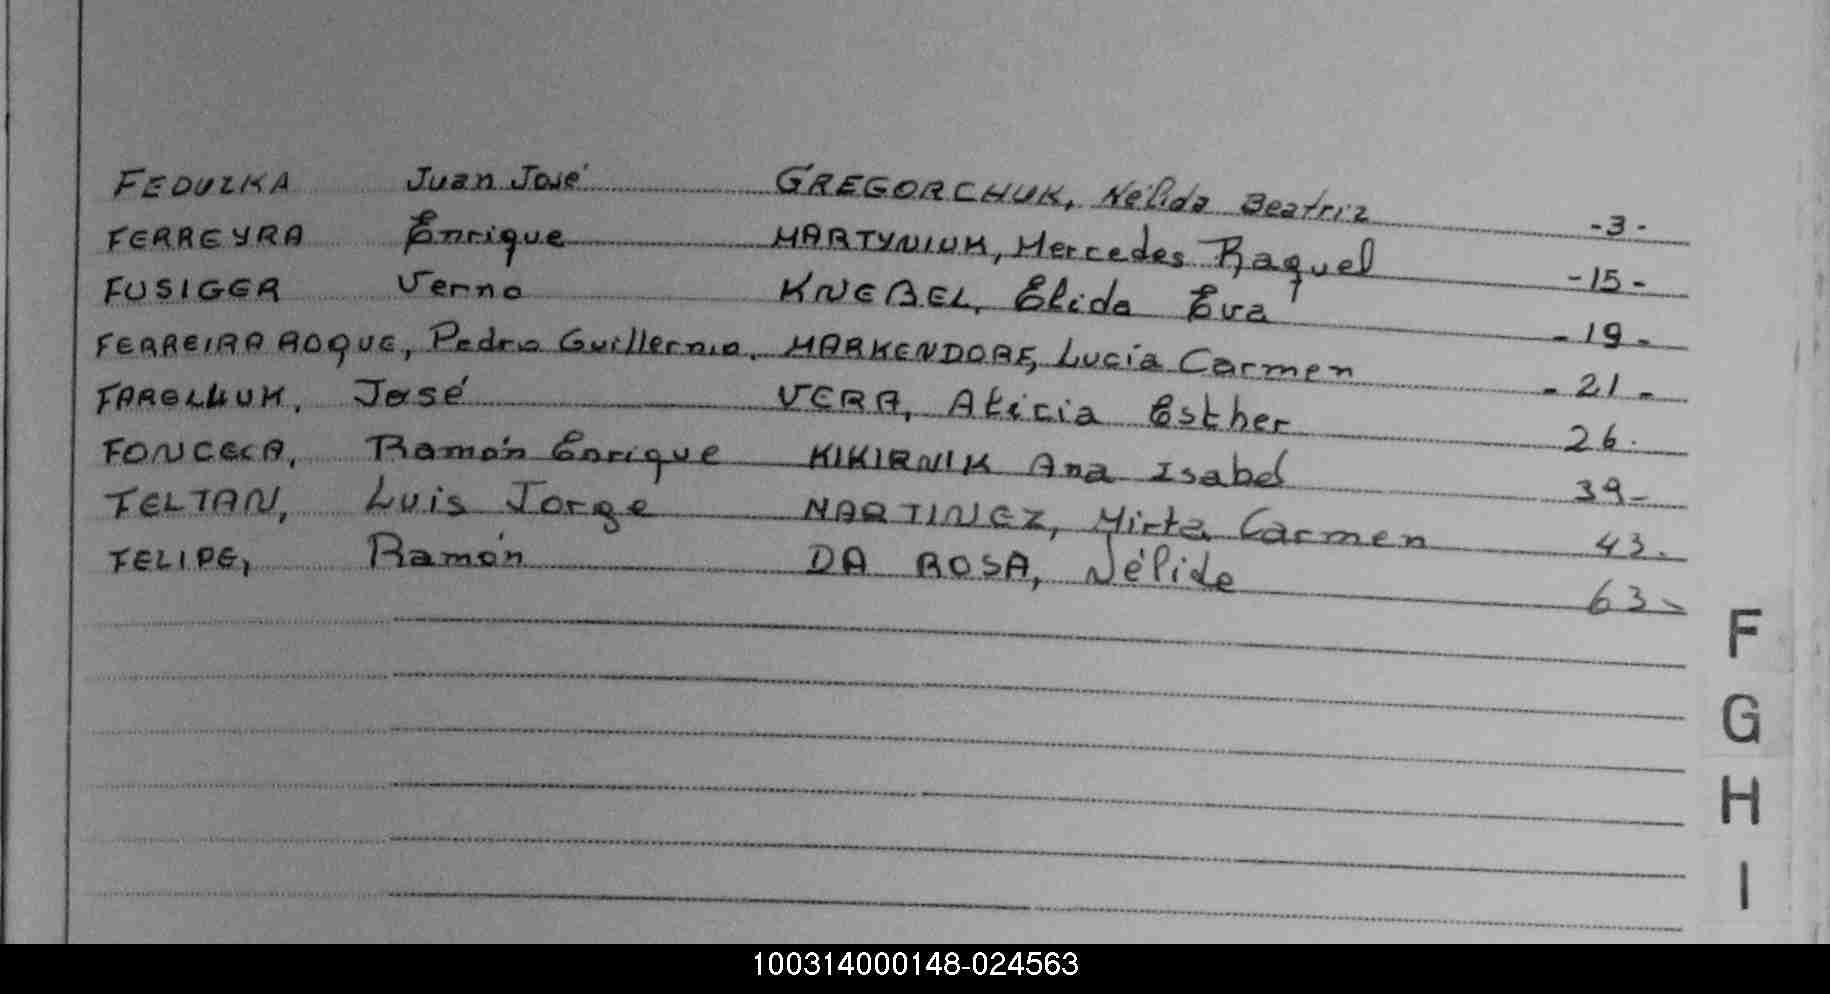 FEDUZKA Juan José GREGORCHUK, Nélida Beatriz -3-
FERREYRA Enrique MARTYNIUK, Mercedes Raquel -15-
FUSIGER Verno KNEBEL, Elida Eva -19-
FERREIRA ROQUE, Pedro Guillermo, MARKENDORF, Lucía Carmen -21-
José VERA, Alicia Esther 26.
FONCECA, Ramón Enrique KIKIRNIK Ana Isabel 39-
FELTAN, Luis Jorge MARTINEZ, Mirta Carmen 43.
FELIPE, Ramón DA ROSA, Nélida 63-
F
G
H
I
100314000148-024563